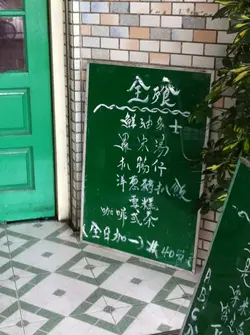 全飡
鮮油多士
羅宋湯
扒腸仔
洋葱豬扒飯
雪糕
咖啡或茶
(全日加一) $40